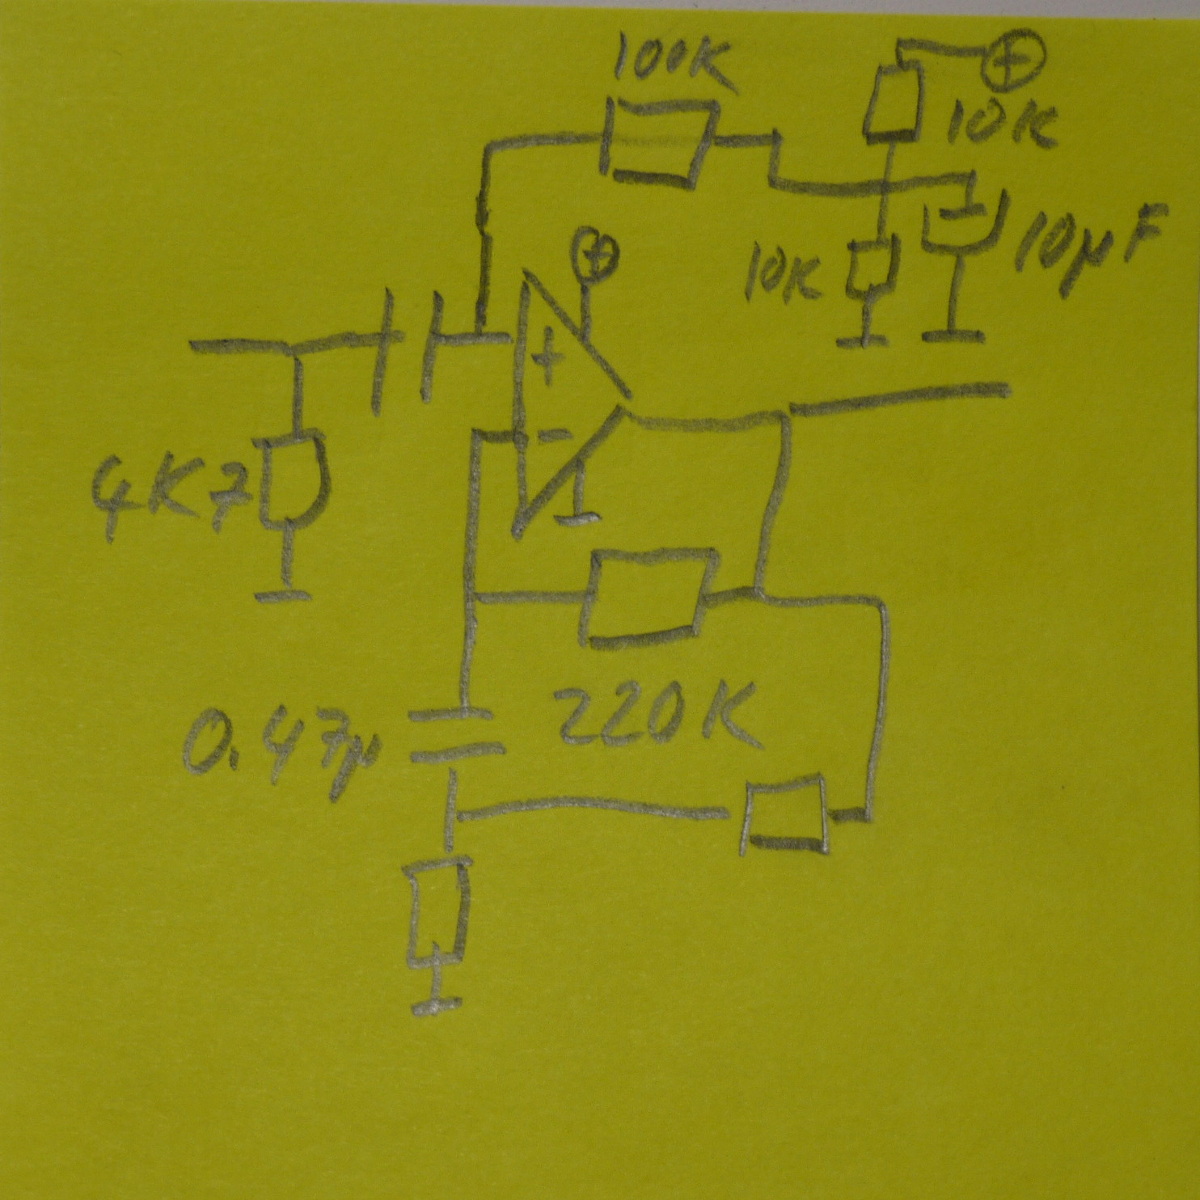 100K
10K
10K
10µF
+
-
4K7
220K
0.47µ